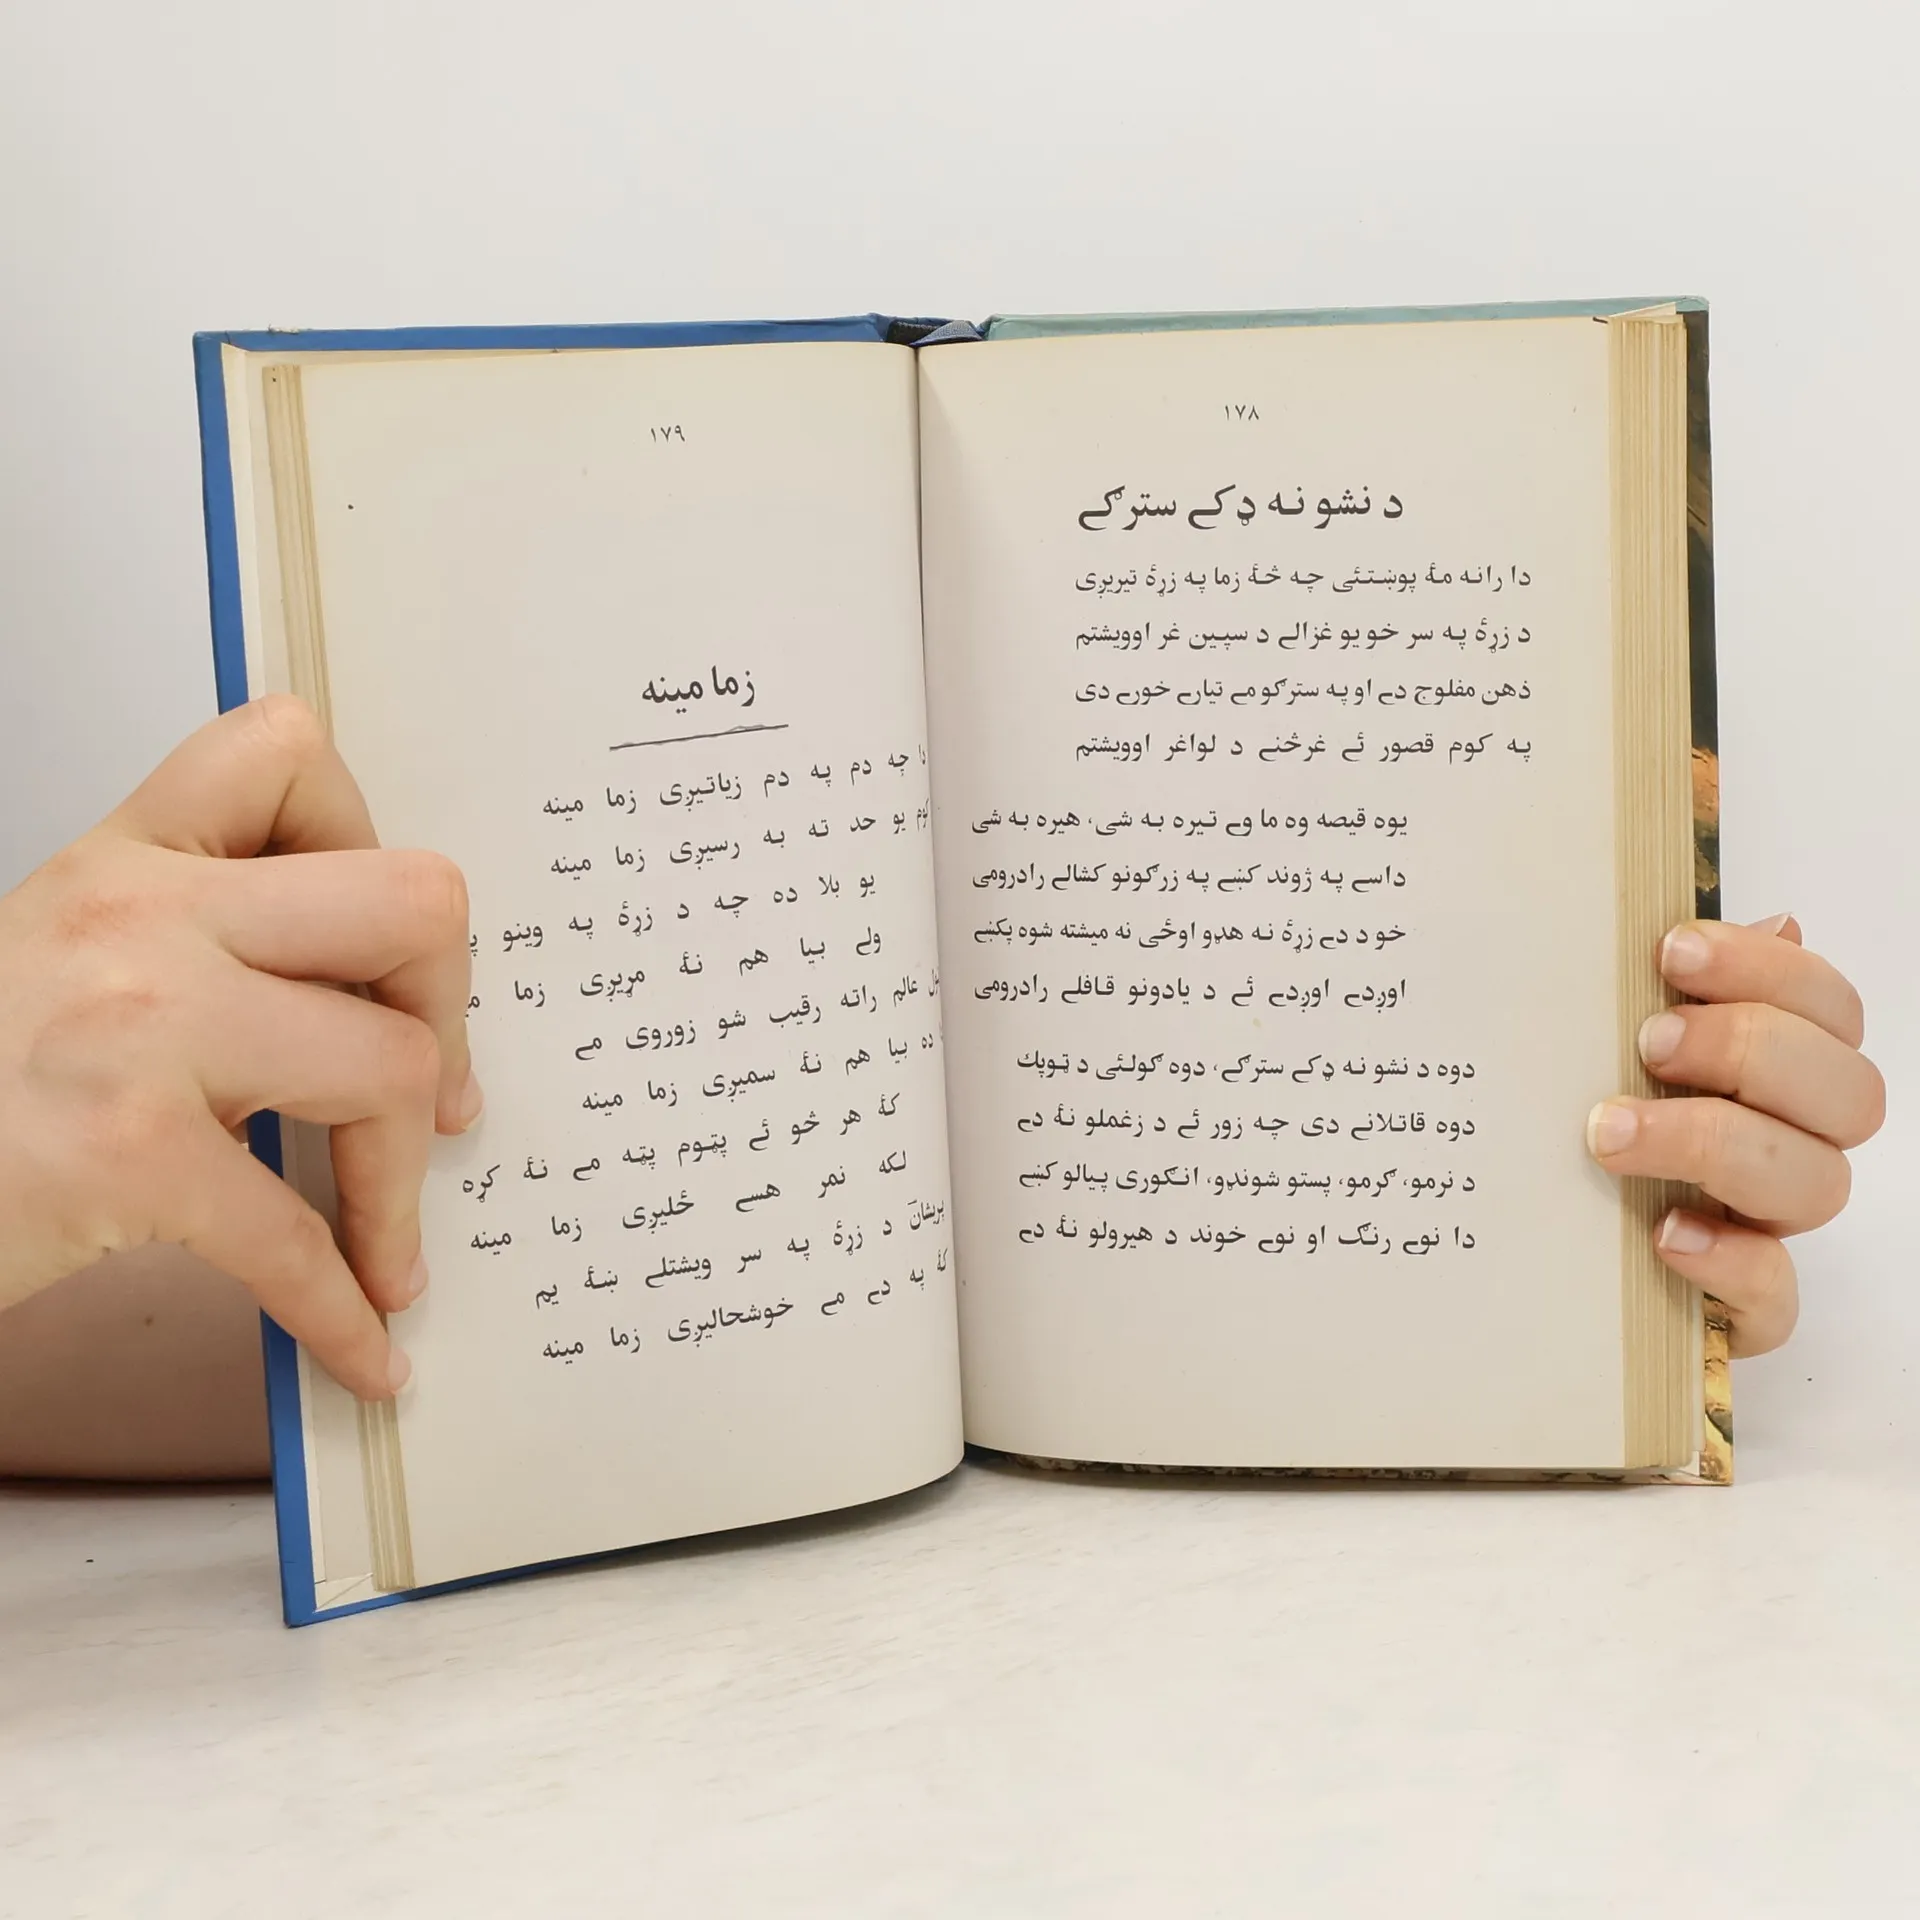 ١٧٨
د نشو نه ډکے سترګے
دا رانه مۀ پوښتئی چه څۀ زما په زړۀ تیریږی
د زړۀ په سر خو یو غزالے د سپین غر اوویشتم
ذهن مفلوج دے او په سترګو مے تیارے خورے دی
په کوم قصور ئے غرڅنے د لواغر اوویشتم
یوه قیصه وه ما وے تیره به شی، هیره به شی
داسے په ژوند کښے په زرګونو کشالے رادرومی
خو د دے زړۀ نه هډو اوځی نه میشته شوه پکښے
اوږدے اوږدے ئے د یادونو قافلے رادرومی
دوه د نشو نه ډکے سترګے، دوه ګولئی د ټوپك
دوه قاتلانے دی چه زور ئے د زغملو نۀ دے
د نرمو، ګرمو، پستو شونډو، انګوری پیالو کښے
دا نوے رنګ او نوے خوند د هیرولو نۀ دے
١٧٩
زما مینه
چه دم په دم زیاتیږی زما مینه
کوم یو حد ته به رسیږی زما مینه
یو بلا ده چه د زړۀ په وینو
ولے بیا هم نۀ مړیږی زما
عالم راته رقیب شو زوروی مے
ده بیا هم نۀ سمیږی زما مینه
کۀ هر څو ئے پټوم پټه مے نۀ کړه
لکه نمر هسے ځلیږی زما مینه
پریشانَ د زړۀ په سر ویشتلے ښۀ یم
کۀ په دے مے خوشحالیږی زما مینه